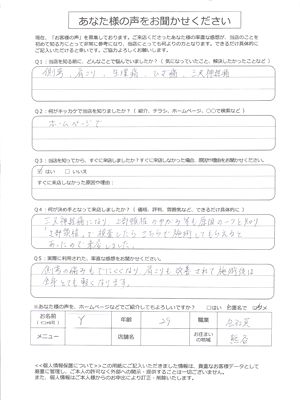 あなた様の声をお聞かせください
現在、「お客様の声」を募集しております。ご来店くださったあなた様の率直な感想が、当店のことを
初めて知る方にとって非常に参考になり、当店にとっても何よりの力となります。できるだけ具体的に
ご記入いただけると幸いです。ご協力よろしくお願いします。
Q1：当店を知る前に、どんなことで悩んでいましたか？（気になっていたこと、解決したかったことなど）
肩こり、生理痛
Q2：何がキッカケで当店を知りましたか？（紹介、チラシ、ホームページ、〇〇で検索など）
ホームページで
Q3：当店を知ってから、すぐに来店しましたか？すぐに来店しなかった場合、原因や理由をお聞かせください。
はい　□いいえ
すぐに来店しなかった原因や理由：
Q4：何が決め手となって来店しましたか？（価格、評判、雰囲気など、できるだけ具体的に）
三叉神経痛になり、上部頸椎のゆがみ等も原因の一つと知り
「上部頸椎」で検索したらこちらで施術してもらえると
あったので来店しました。
Q5：実際に利用された、率直な感想をお聞かせください。
肩こりも改善されて施術後は
全身とても軽くなります。
※あなた様の声を、ホームページなどでご紹介してもよろしいですか？　□はい　匿名で　□ダメ
お名前
(イニシャル可)
Y
年齢
29
職業
会社員
メニュー
店舗名
お住まい
の地域
<<個人情報保護について>>この用紙にご記入いただきました情報は、貴重なお客様データとして
厳重に管理し、ご本人の許可なく外部への開示・提供することは一切ございません。
また、個人情報はご本人様からのお申出により訂正・削除いたします。